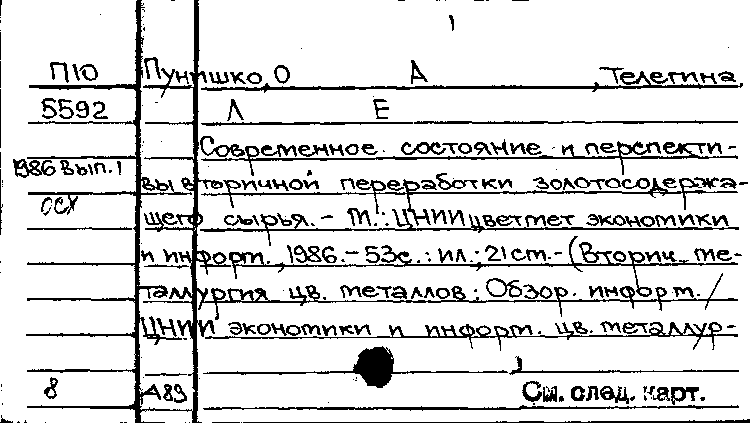 П10 Пунишко, О А , Телегина,
5592 Л Е
Современное состояние и перспекти-
1986 Вып. 1
вы вторичной переработки золотосодержа-
ОСХ
щего сырья. - М.: ЦНИИцветмет экономики
и информ., 1986. - 53с.: ил.; 21см. - (Вторич. ме-
таллургия цв. металлов: Обзор. информ. /
ЦНИИ экономики и информ. цв. металлур-
8 А89 См. след. карт.